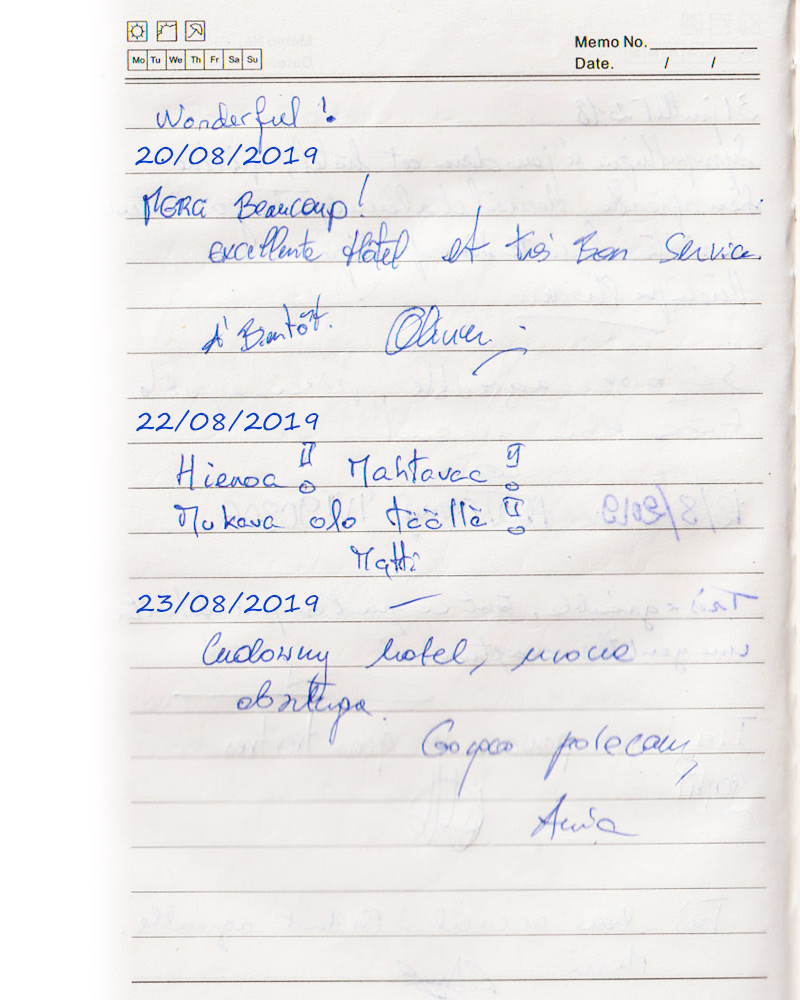 Memo No.
Mo Tu We Th Fr Sa Su
Date. / /
Wonderful !
20/08/2019
MERCI Beaucoup!
excellente Hôtel et très Bon Service.
A' Bientôt. Olivier
22/08/2019
Hienoa !! Mahtavaa !
Mukava olo täällä !!
Matti
23/08/2019
Cudowny hotel, urocza
obsługa.
Gorąco polecam,
Ania